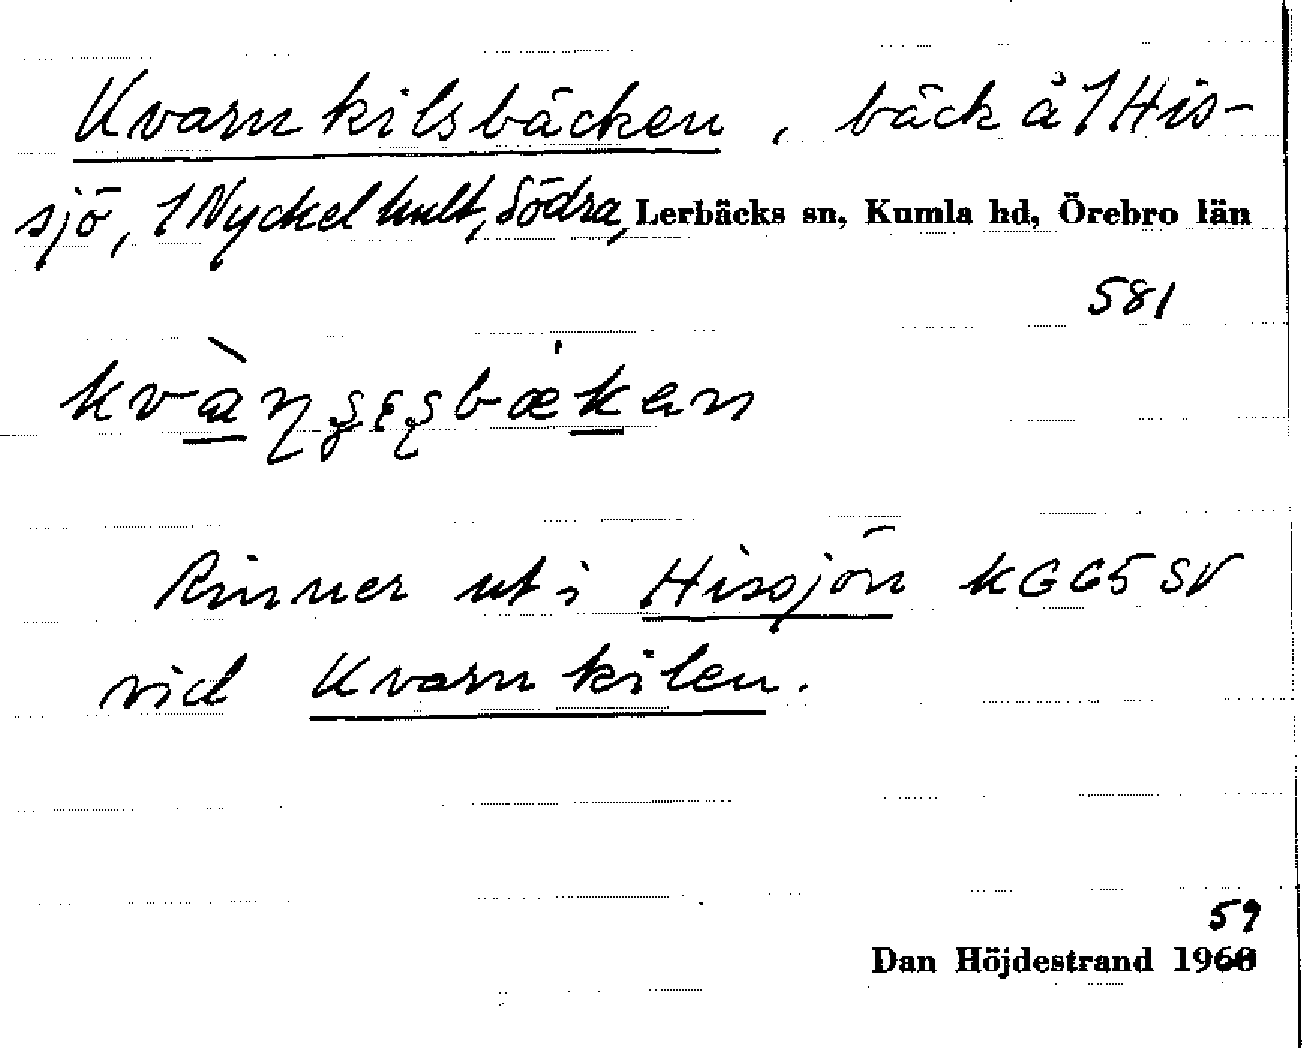 Kvarnkilsbäcken, bäck å 1 His-
sjö, 1 Nyckelhult, Södra, Lerbäcks sn, Kumla hd, Örebro län
581
Rinner ut i Hissjön KG65 SV
vid Kvarnkilen.
59
Dan Höjdestrand 1960